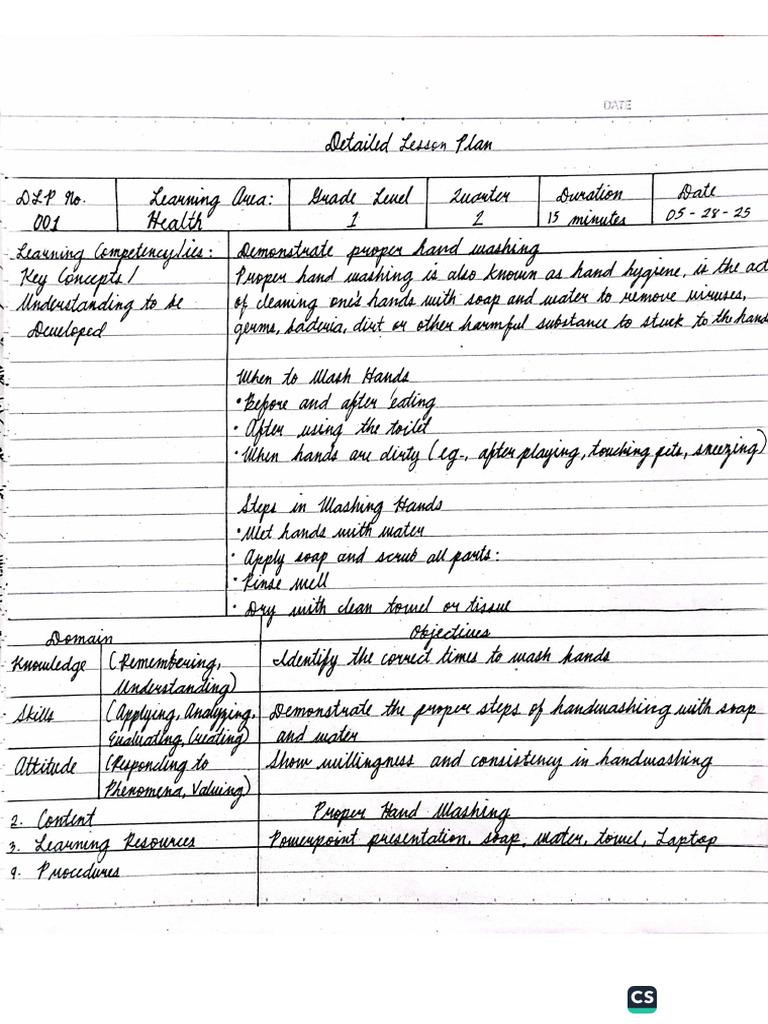 DATE
Detailed Lesson Plan
DLP No. Learning Area: Grade Level Quarter Duration Date
001 Health 1 2 15 minutes 05-28-25
Learning Competency/ies: Demonstrate proper hand washing
Key Concepts / Proper hand washing is also known as hand hygiene, is the act
Understanding to be of cleaning one's hands with soap and water to remove viruses,
Developed germs, bacteria, dirt or other harmful substance to stuck to the hands
When to Wash Hands
• Before and after eating
• After using the toilet
• When hands are dirty (eg., after playing, touching pets, sneezing)
Steps in Washing Hands
• Wet hands with water
• Apply soap and scrub all parts:
• Rinse well
• Dry with clean towel or tissue
Domain Objectives
Knowledge (Remembering, Identify the correct times to wash hands
Understanding)
Skills (Applying, Analyzing, Demonstrate the proper steps of handwashing with soap
Evaluating, Creating) and water
Attitude (Reponding to Show willingness and consistency in handwashing
Phenomena, Valuing)
2. Content Proper Hand Washing
3. Learning Resources Powerpoint presentation, soap, water, towel, Laptop
4. Procedures
CS